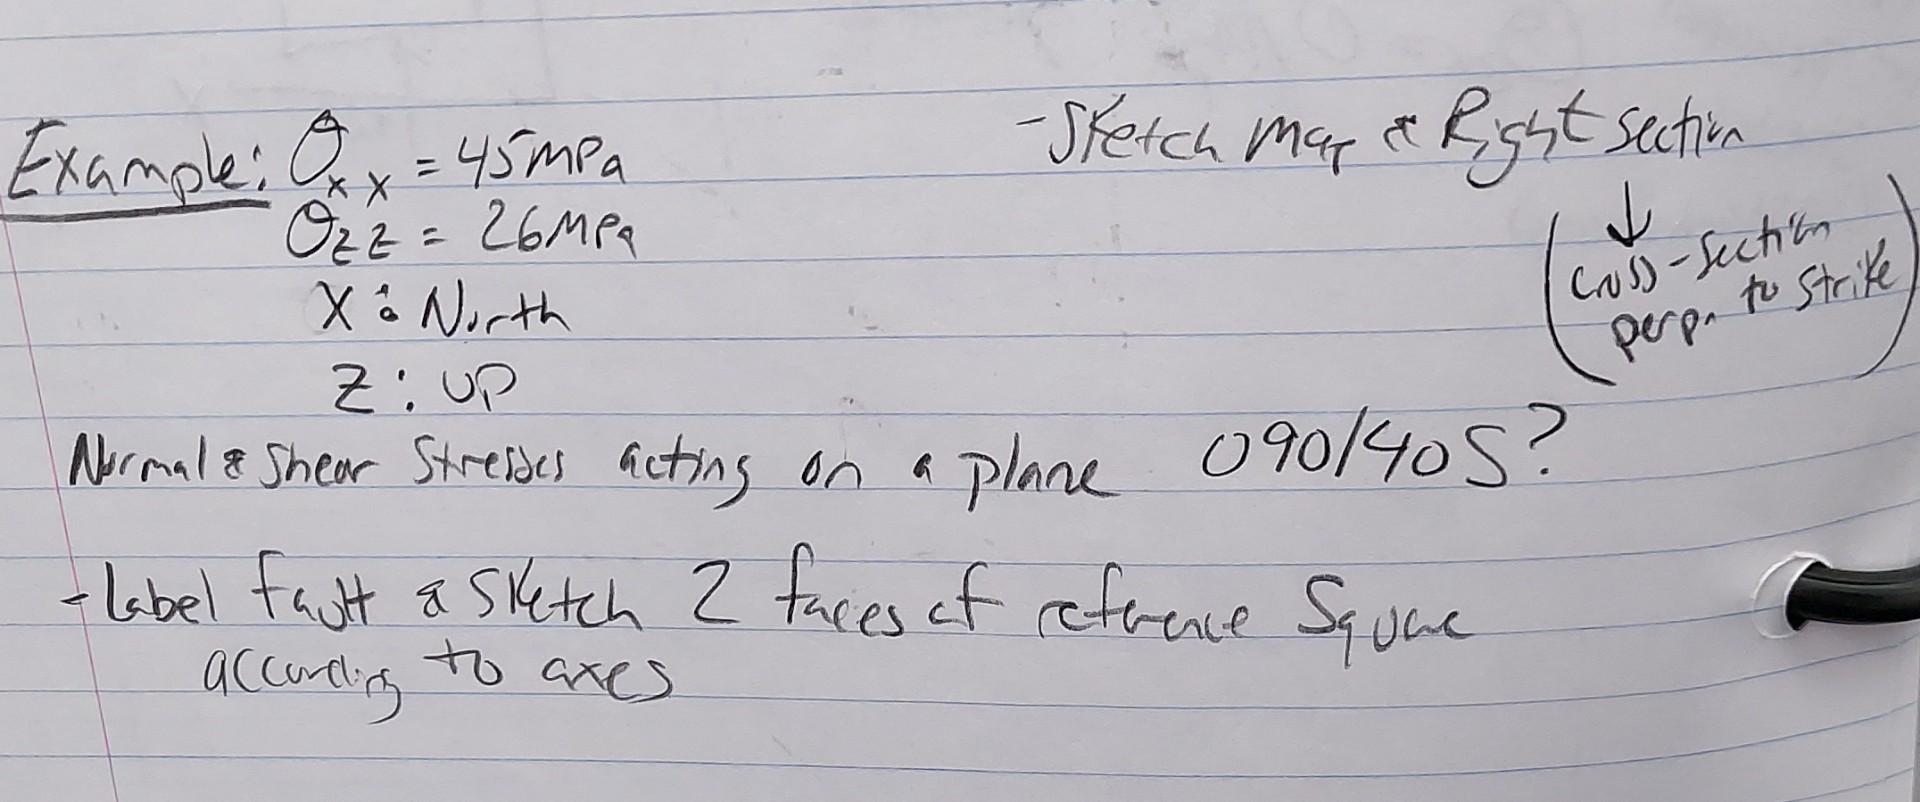 Example: σxx = 45MPa
σzz = 26MPa
X: North
Z: UP
-Sketch Map & Right section
↓
(cross-section
perp. to strike)
Normal & Shear Stresses acting on a plane 090/40S?
-Label fault & Sketch 2 faces of reference Square
according to axes